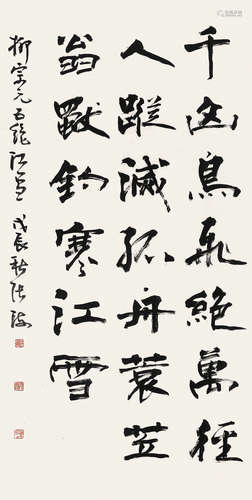 千山鳥飛絕萬徑
人蹤滅孤舟蓑笠
翁獨釣寒江雪
柳宗元五絕江雪 戊辰秋張海